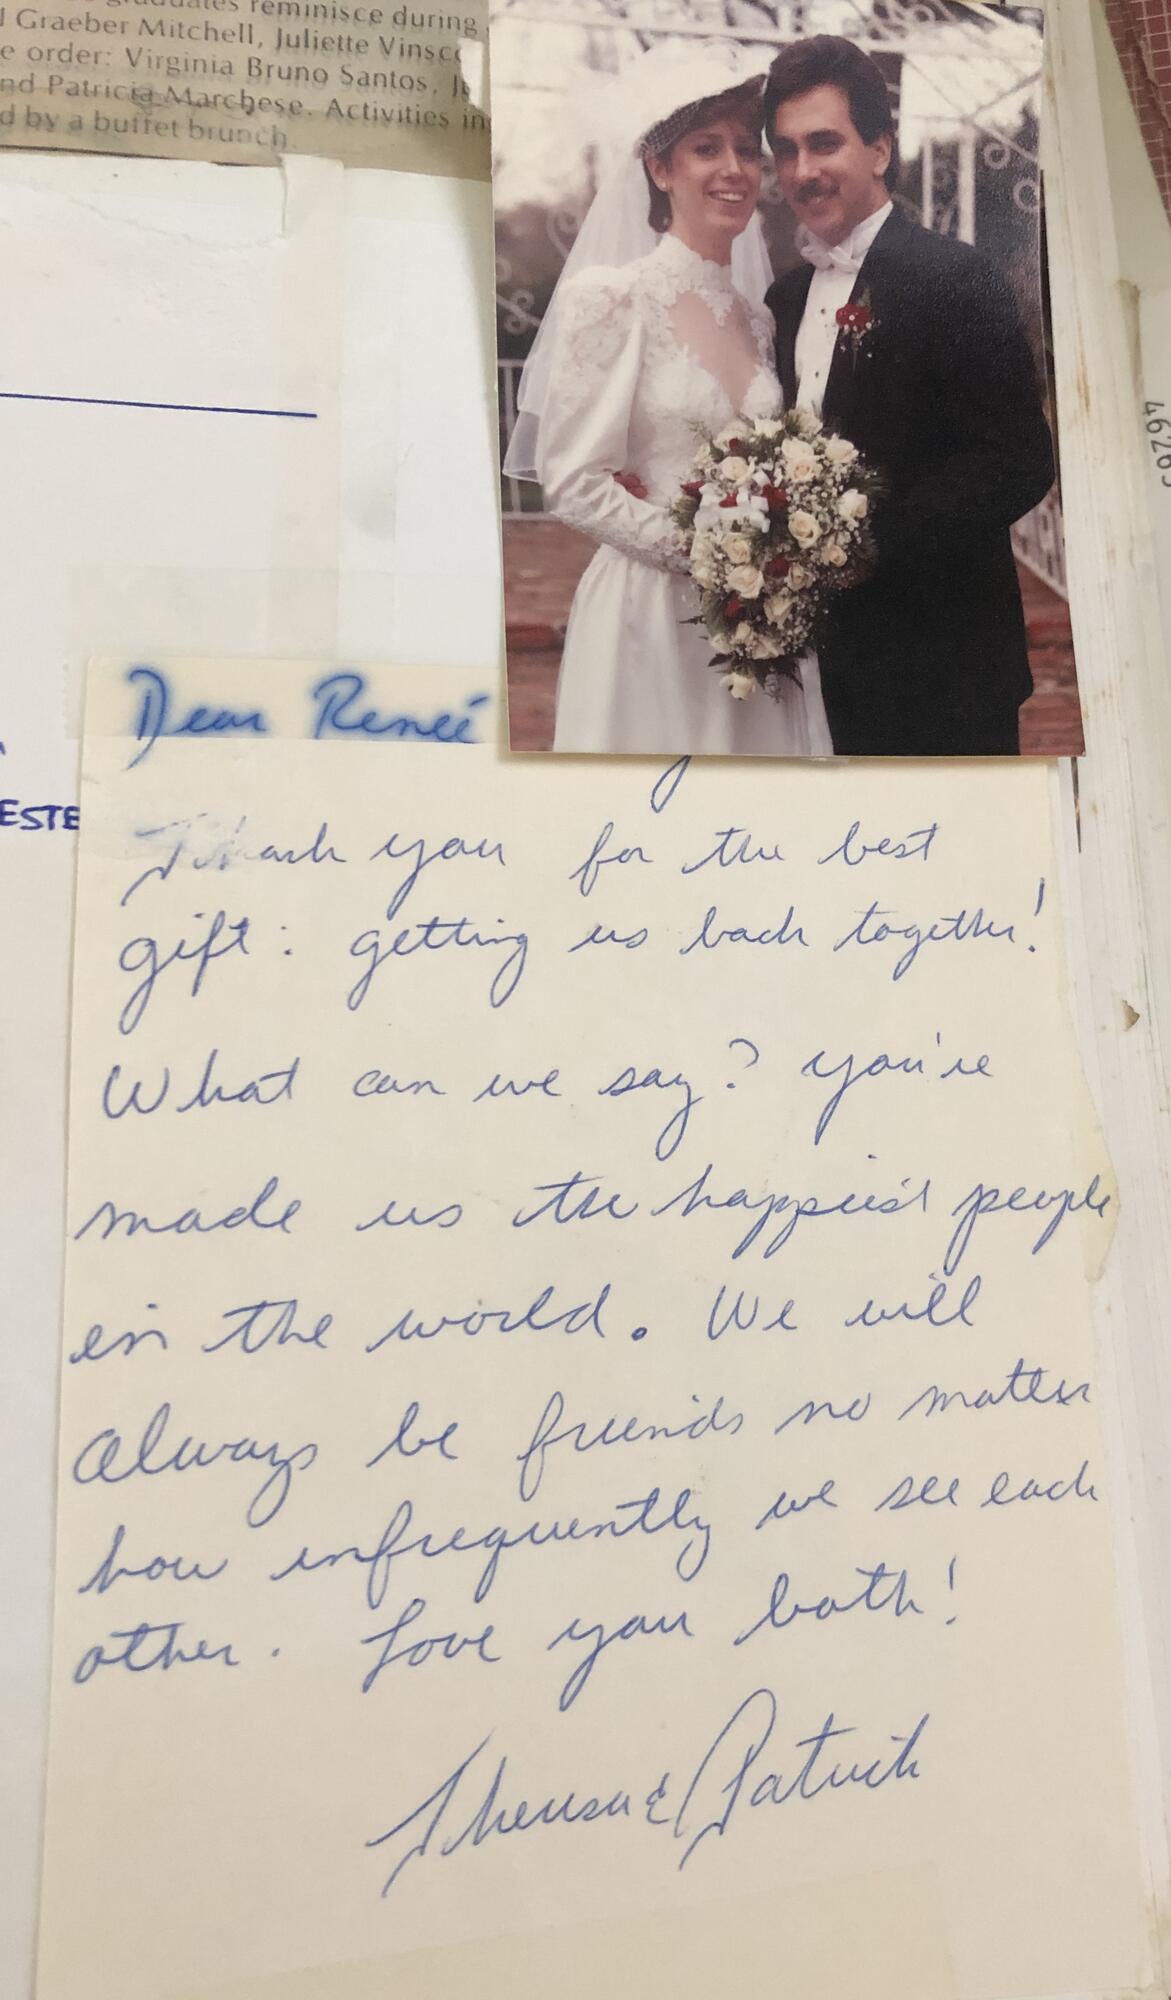 graduates reminisce during
Graeber Mitchell, Juliette
e order: Virginia Bruno Santos,
nd Patricia Marchese. Activities
d by a buffet brunch.
46265
ESTE
Dear Reneé
Thank you for the best
gift: getting us back together!
What can we say? you're
made us the happiest people
in the world. We will
always be friends no matter
how infrequently we see each
other. Love you both!
Theresa & Patrick